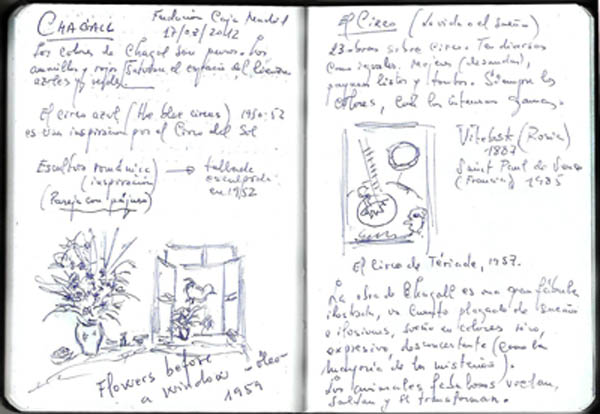 CHAGALL
Fundación Caja Madrid
17/03/2012
Los colores de Chagal son puros. Los
amarillos y rojos salvan el espacio del lienzo
azules y verdes.
El circo azul (the blue circus) 1950-52
es una inspiración por el Circo del Sol
Escultura románica → tallada
(inspiración) esculpida
(Pareja con pájaro) en 1952
Flowers before
a window - óleo -
1959
El Circo (La vida o el sueño)
23 obras sobre circo. Tan diversas
como iguales. Mujeres (desnudas),
payasos listos y tontos. Siempre los
colores, con las
Vitebsk (Rusia)
1887
Saint Paul de Vence
(Francia) 1985
El Circo de Tériade, 1937.
La obra de Chagall es una gran fábula
ilustrada, un cuento plagado de sueños
e ilusiones, sueño en colores vivo,
expresivo, desconcertante (como la
mayoría de los misterios).
Los animales fabulosos vuelan,
saltan y se transforman.